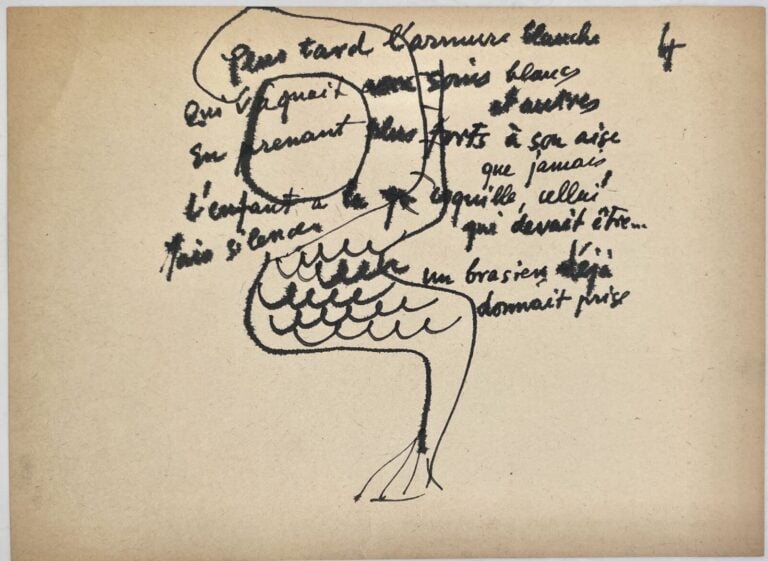 4
Plus tard l'armure blanche
Qui vaquait aux soins blancs
et autres
En prenant plus forts à son aise
que jamais
L'enfant à la coquille, celui
qui devait être...
fais silence
un brasier déjà
donnait prise